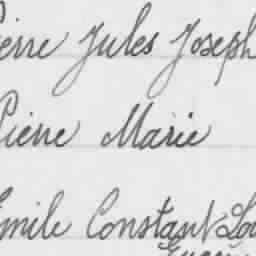 Pierre Jules Joseph
Pierre Marie
Emile Constant Lou